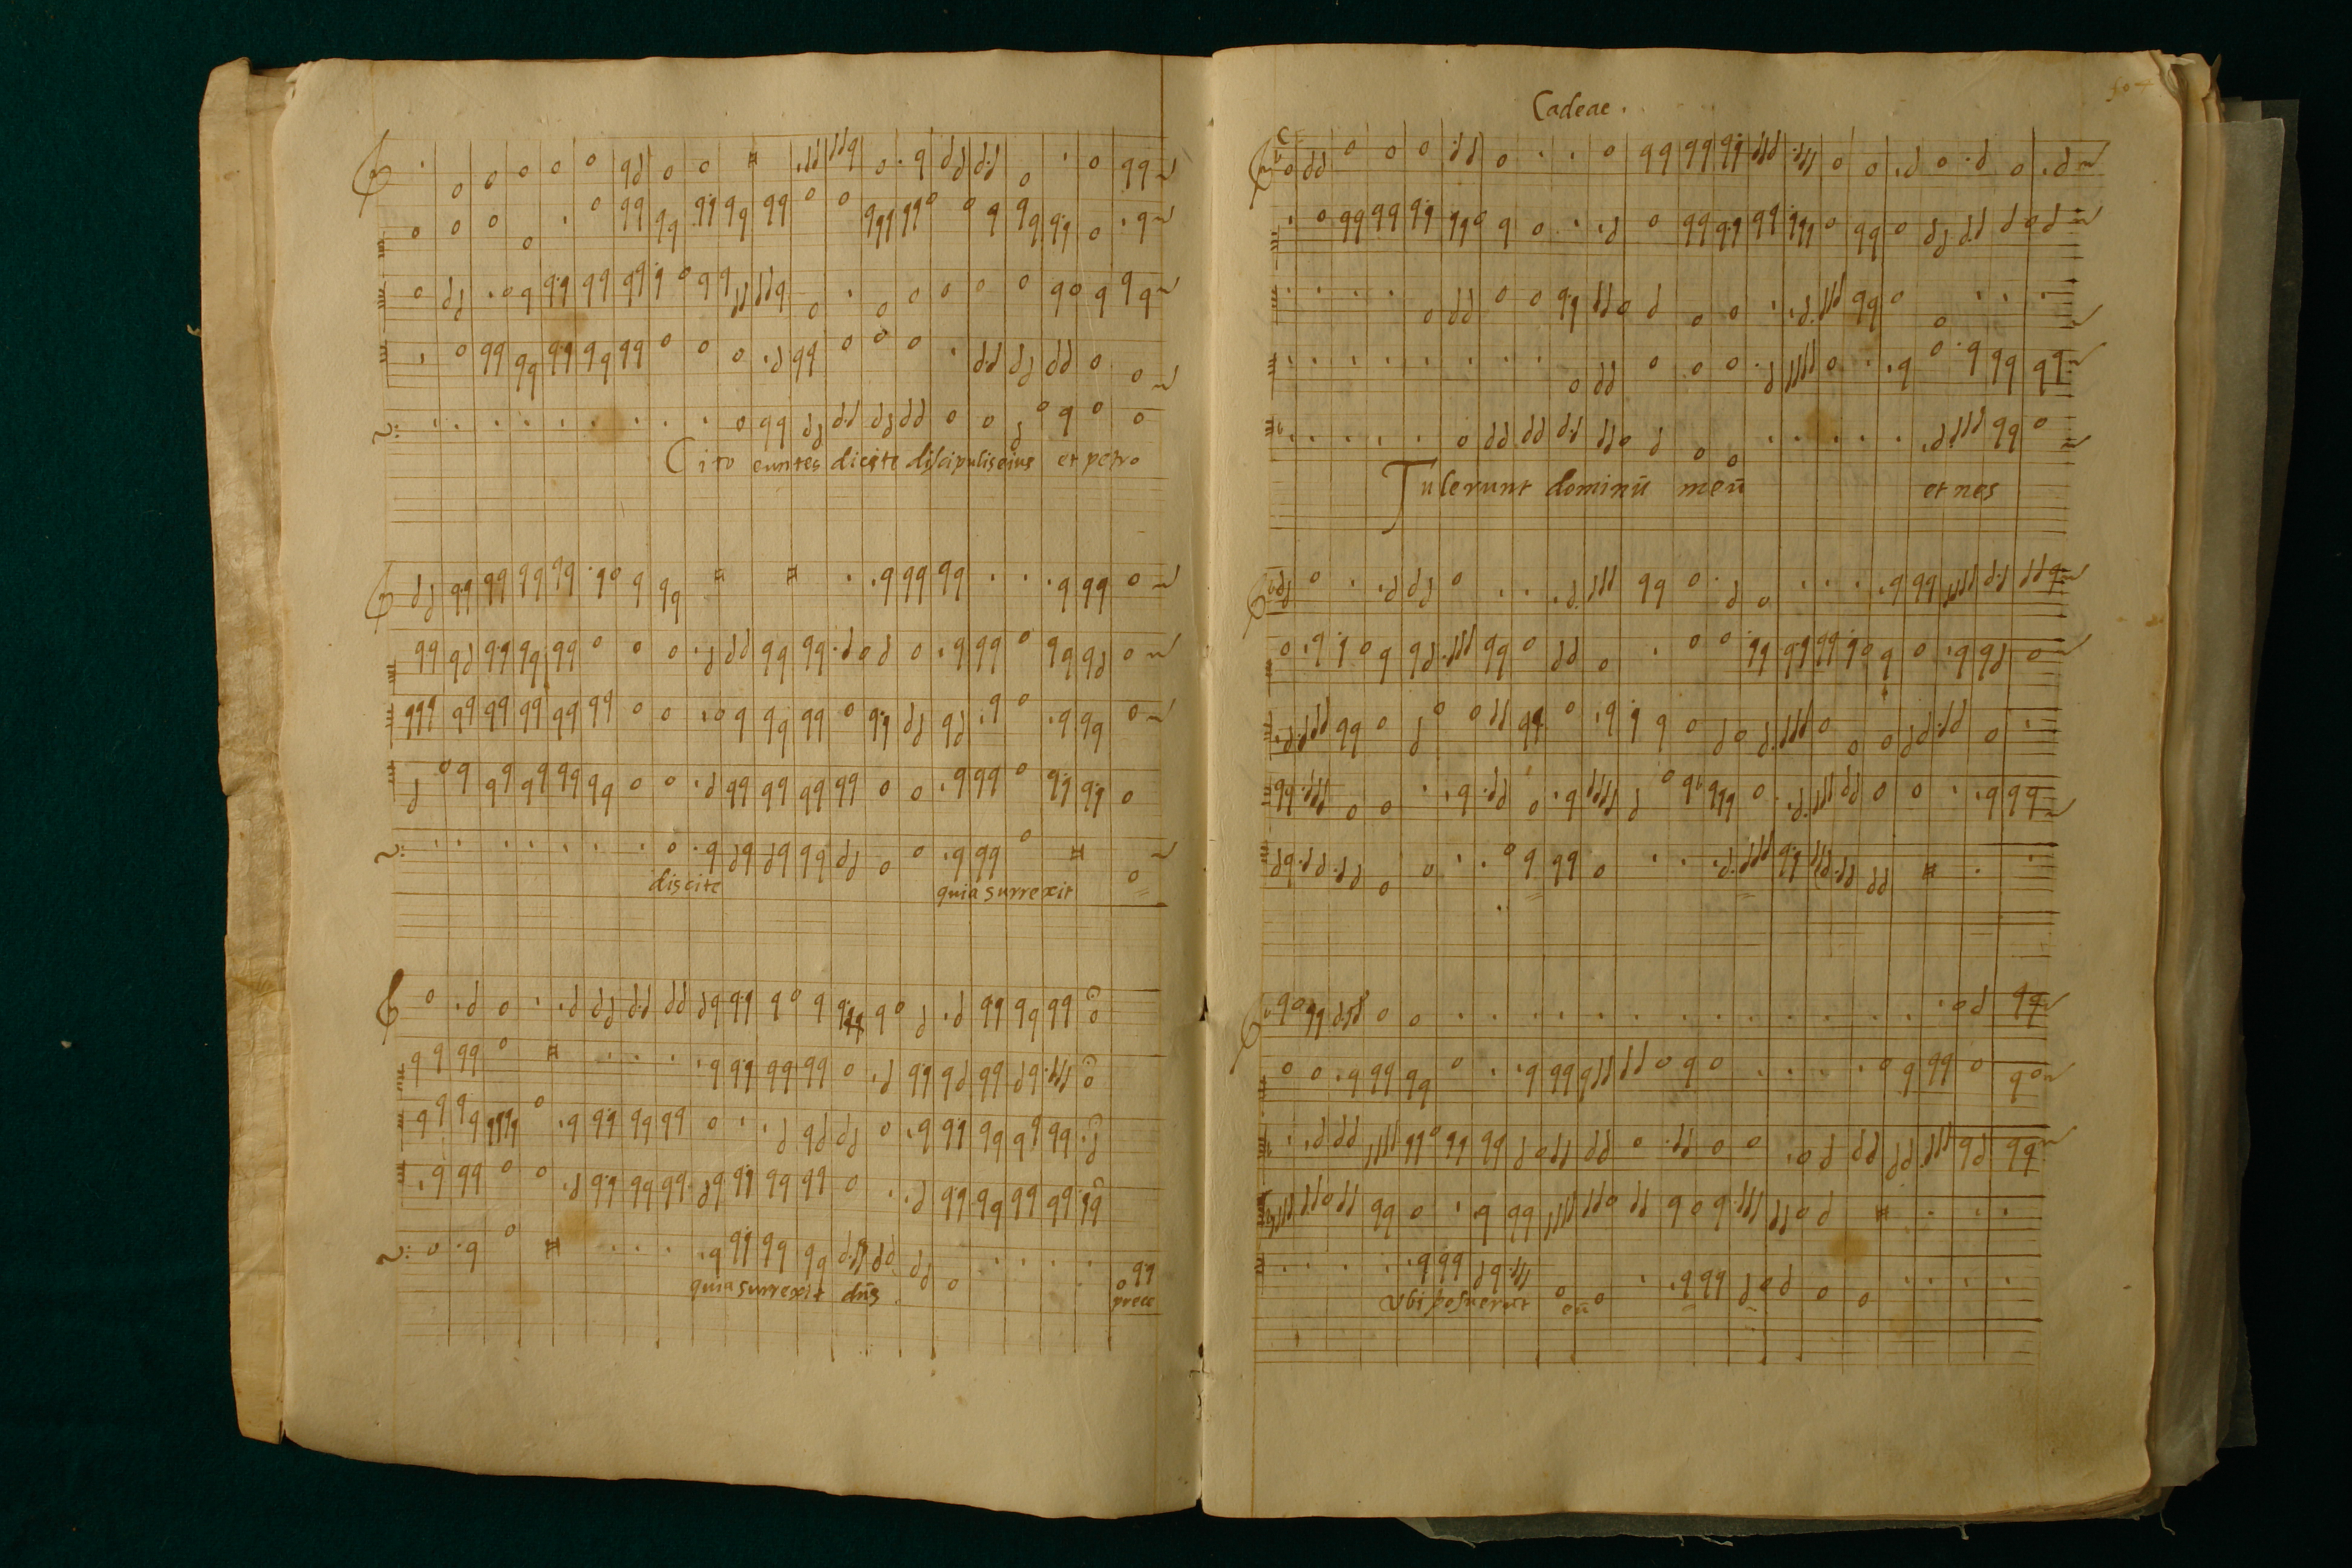 Cito euntes dicite discipulis eius et petro
discite quia surrexit
quia surrexit dñs. prece
Cadeac.
Tulerunt dominū meū et nes
Vbi posuerūt eū